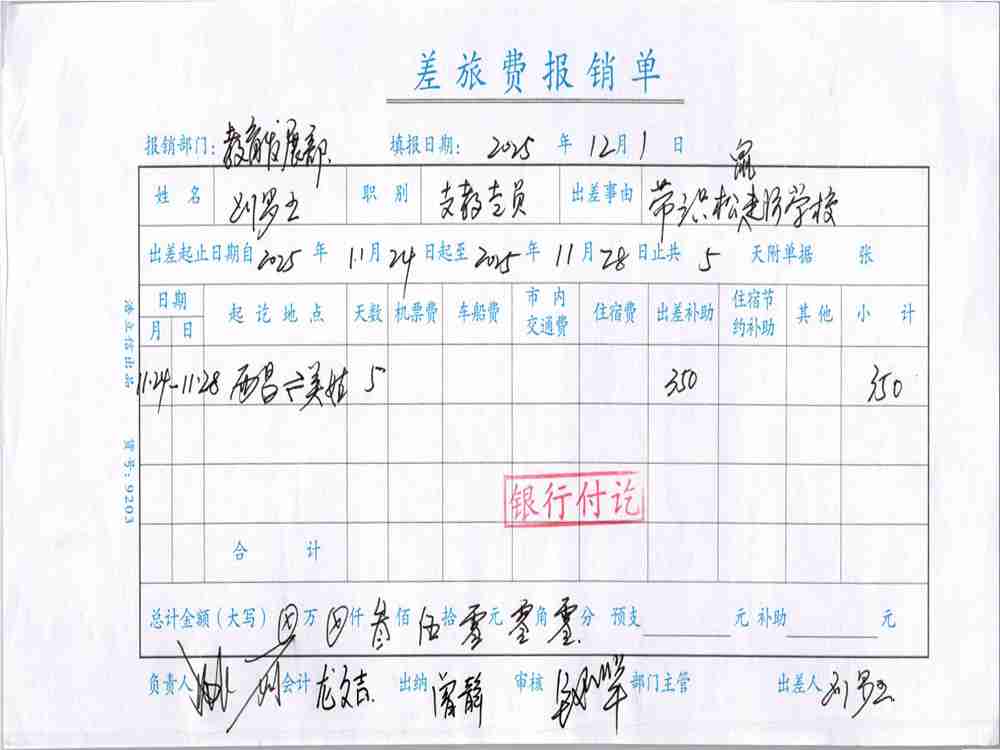 差旅费报销单
报销部门：教育发展部 填报日期：2025年12月1日
姓名 刘罗 职别 支教专员 出差事由 带 松 学校
出差起止日期自2025年11月24日起至2025年11月28日止共5天附单据 张
日期 起讫地点 天数 机票费 车船费 市内交通费 住宿费 出差补助 住宿节约补助 其他 小计
月 日
11.24-11.28 西昌⇌美姑 5 350 350
银行付讫
合计
总计金额（大写）⊗万⊗仟叁佰伍拾零元零角零分 预支 元 补助 元
负责人 会计 龙文吉 出纳 曾静 审核 部门主管 出差人 刘罗
浩立信出品 货号：9203